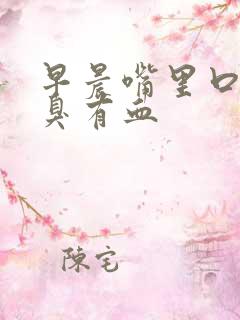 早晨嘴里口
臭有血
陳宅